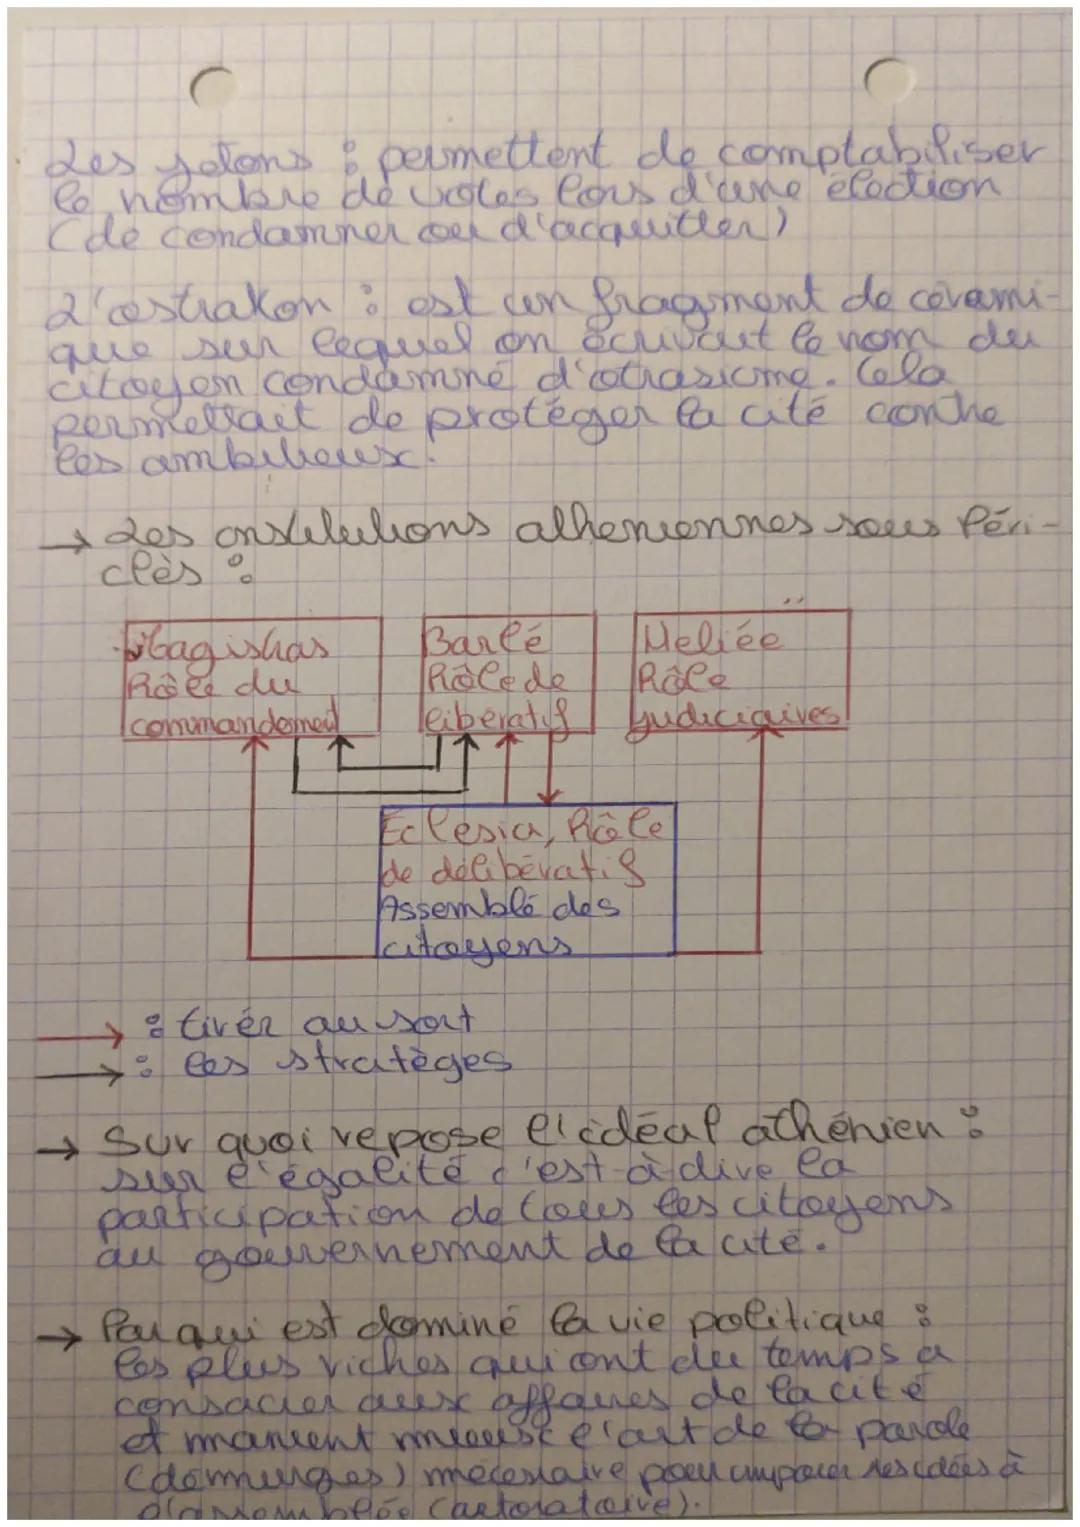 Les jetons : permettent de comptabiliser
le nombre de votes lors d'une élection
(de condamner ou d'acquitter)
L'ostrakon : est un fragment de cérami-
que sur lequel on écrivait le nom du
citoyen condamné d'otrasicme. Cela
permettait de protéger la cité contre
les ambitieux.
→ Les institutions atheniennes sous Péri-
clès :
Magistras
Rôle du
commandement
Barlé
Rôle de
libératif
Heliée
Rôle
judiciaires
Eclésia, Rôle
de délibératif
Assemblé des
citoyens
→ : tirér au sort
→ : les stratèges
→ Sur quoi repose l'idéal athénien :
sur l'égalité c'est-à-dire la
participation de tous les citoyens
au gouvernement de la cité.
→ Par qui est dominé la vie politique :
les plus riches qui ont du temps a
consacrer aux affaires de la cité
et manient mieux l'art de la parole
(démurges) nécessaire pour imposer ses idées à
l'assemblée